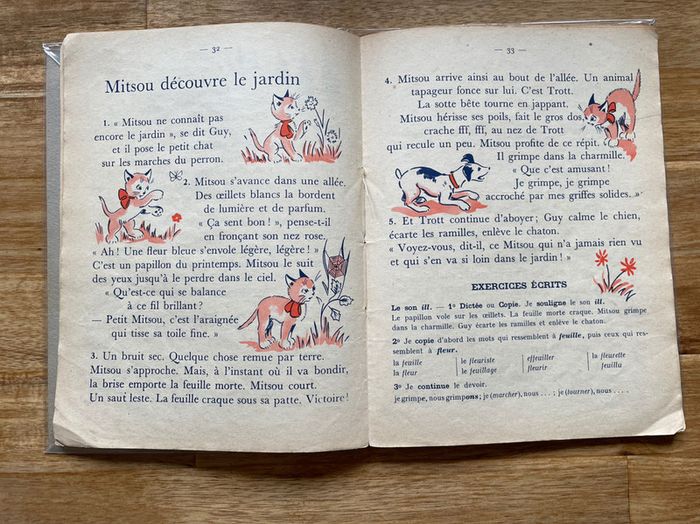 — 32 —
Mitsou découvre le jardin
1. « Mitsou ne connaît pas
encore le jardin », se dit Guy,
et il pose le petit chat
sur les marches du perron.
2. Mitsou s'avance dans une allée.
Des œillets blancs la bordent
de lumière et de parfum.
« Ça sent bon ! », pense-t-il
en fronçant son nez rose.
« Ah ! Une fleur bleue s'envole légère, légère ! »
C'est un papillon du printemps. Mitsou le suit
des yeux jusqu'à le perdre dans le ciel.
« Qu'est-ce qui se balance
à ce fil brillant ?
— Petit Mitsou, c'est l'araignée
qui tisse sa toile fine. »
3. Un bruit sec. Quelque chose remue par terre.
Mitsou s'approche. Mais, à l'instant où il va bondir,
la brise emporte la feuille morte. Mitsou court.
Un saut leste. La feuille craque sous sa patte. Victoire !
— 33 —
4. Mitsou arrive ainsi au bout de l'allée. Un animal
tapageur fonce sur lui. C'est Trott.
La sotte bête tourne en jappant.
Mitsou hérisse ses poils, fait le gros dos
crache fff, fff, au nez de Trott
qui recule un peu. Mitsou profite de ce répit.
Il grimpe dans la charmille.
« Que c'est amusant !
Je grimpe, je grimpe
accroché par mes griffes solides.. »
5. Et Trott continue d'aboyer ; Guy calme le chien,
écarte les ramilles, enlève le chaton.
« Voyez-vous, dit-il, ce Mitsou qui n'a jamais rien vu
et qui s'en va si loin dans le jardin ! »
EXERCICES ÉCRITS
Le son ill. — 1º Dictée ou Copie. Je souligne le son ill.
Le papillon vole sur les œillets. La feuille morte craque. Mitsou grimpe
dans la charmille. Guy écarte les ramilles et enlève le chaton.
2º Je copie d'abord les mots qui ressemblent à feuille, puis ceux qui res-
semblent à fleur.
la feuille le fleuriste effeuiller la fleurette
la fleur le feuillage fleurir feuillu
3º Je continue le devoir.
je grimpe, nous grimpons ; je (marcher), nous . . . ; je (tourner), nous . . . .